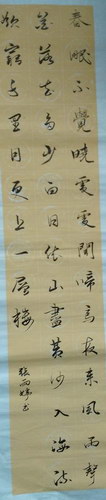 春眠不覺曉處處聞啼鳥夜来風雨聲
花落知多少白日依山盡黄河入海流
欲窮千里目更上一層樓